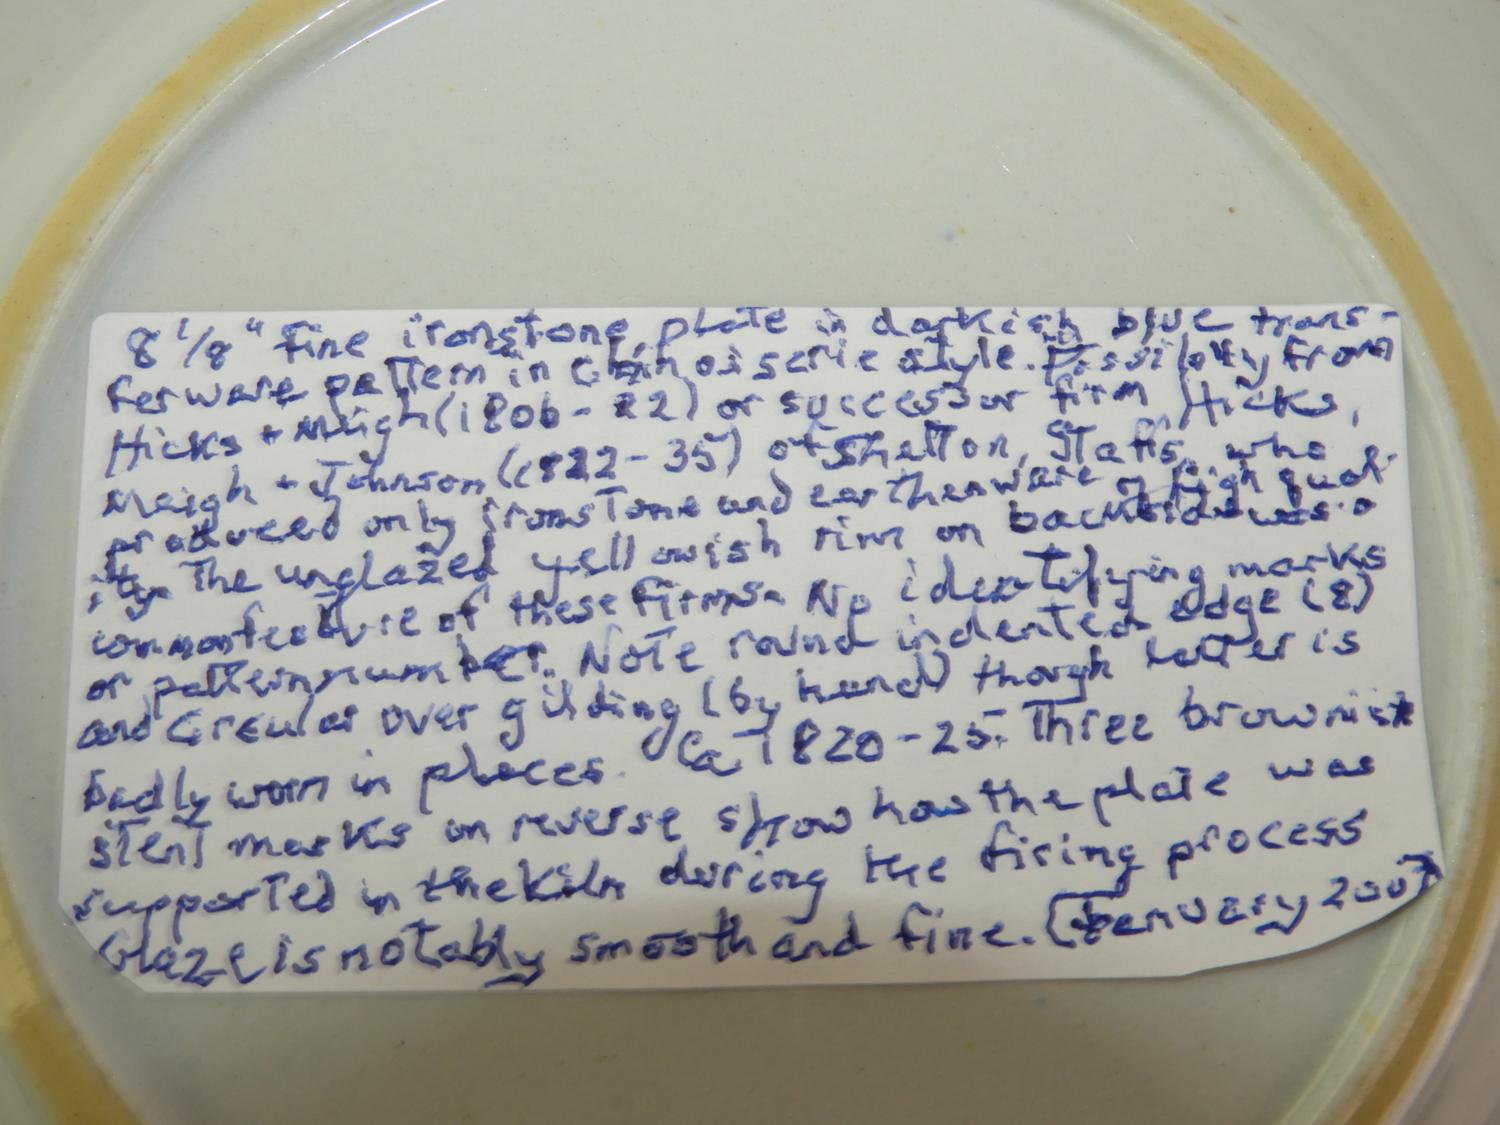 8 1/8" fine ironstone plate in darkish blue trans-
ferware pattern in Chinoiserie style. Possibly from
Hicks + Meigh (1806-22) or successor firm Hicks,
Meigh + Johnson (1822-35) of Shelton, Staffs, who
produced only ironstone and earthenware of high qual-
ity. The unglazed yellowish rim on backside was a
common feature of these firms. No identifying marks
or pattern number. Note round indented edge (8)
and circular over gilding (by hand) though latter is
badly worn in places. Ca 1820-25. Three brownish
stent marks on reverse show how the plate was
supported in the kiln during the firing process
Glaze is notably smooth and fine. (January 2007)